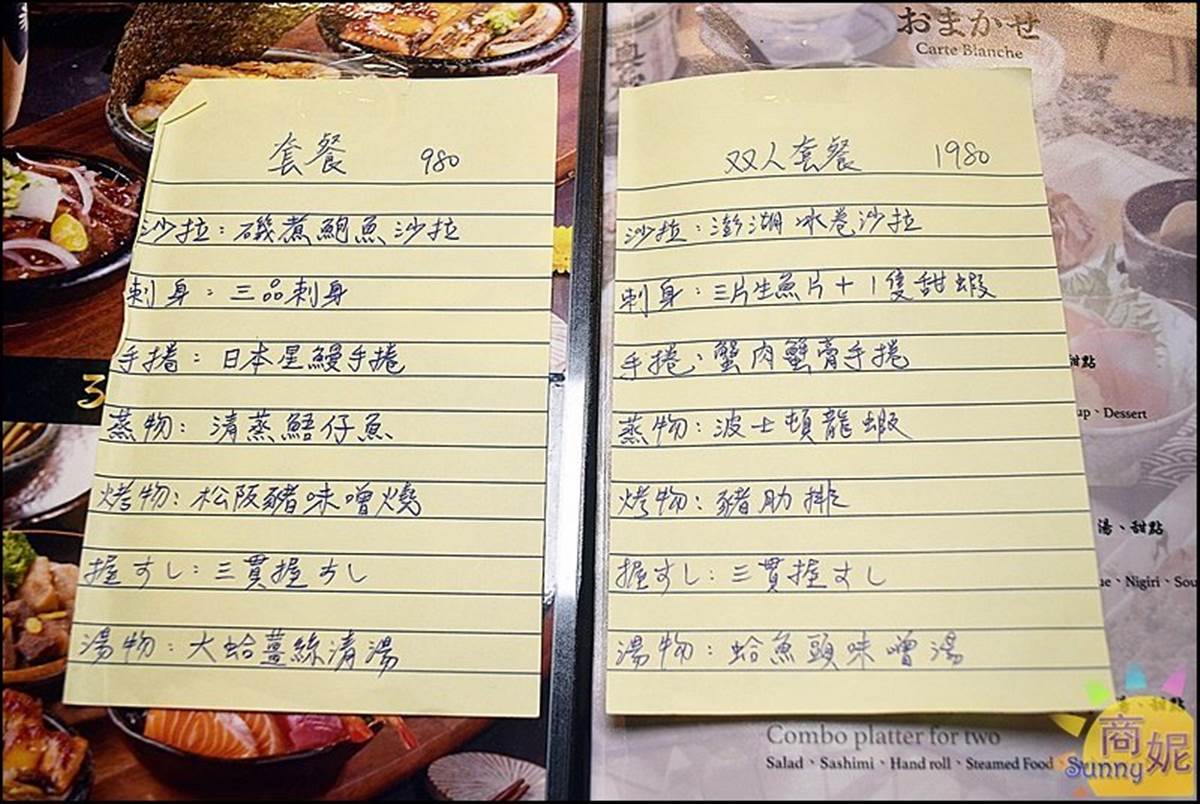 套餐 980
沙拉：磯煮鮑魚沙拉
刺身：三品刺身
手捲：日本星鰻手捲
蒸物：清蒸鯃仔魚
烤物：松阪豬味噌燒
握すし：三貫握すし
湯物：大蛤薑絲清湯
おまかせ
Carte Blanche
双人套餐 1980
沙拉：澎湖冰卷沙拉
刺身：三片生魚片+1隻甜蝦
手捲：蟹肉蟹膏手捲
蒸物：波士頓龍蝦
烤物：豬肋排
握すし：三貫握すし
湯物：蛤魚頭味噌湯
甜點
up、Dessert
湯、甜點
ue、Nigiri、Sou
、甜點
Combo platter for two
Salad、Sashimi、Hand roll、Steamed Food
商妮
Sunny